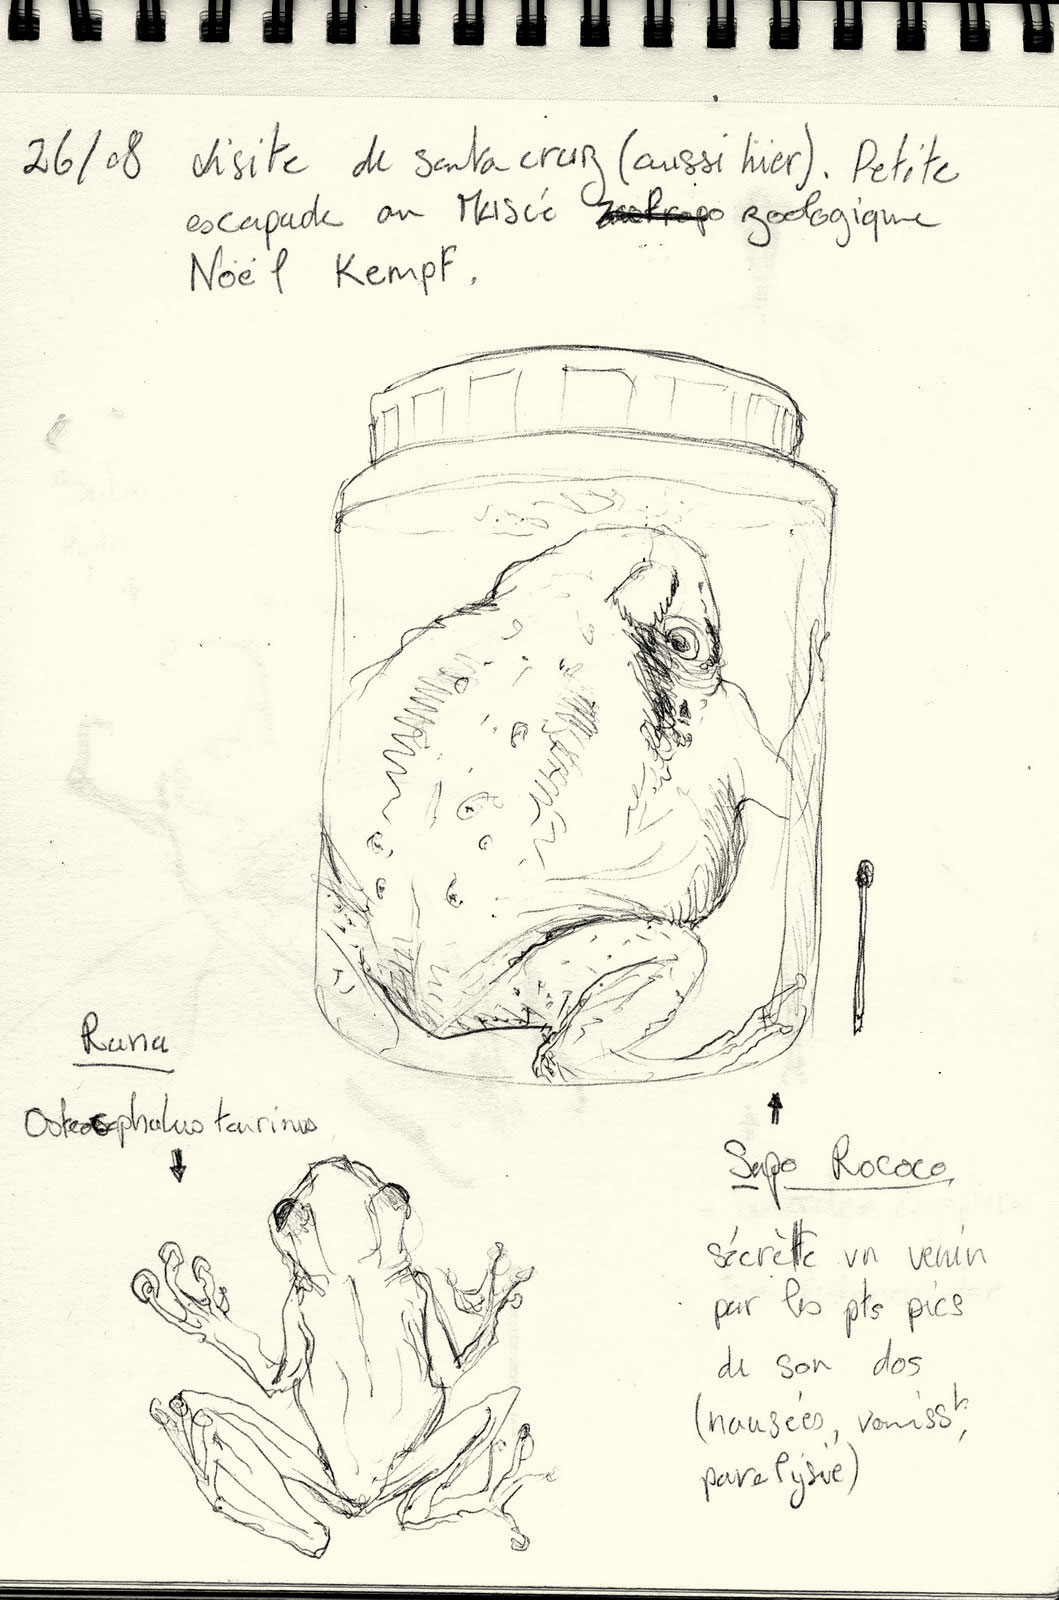 26/08 visite de Santa Cruz (aussi hier). Petite
escapade au Musée zoologique
Noël Kempf.
Rana
Osteocephalus taurinus
Sapo Rococo
sécrète un venin
par les pts pics
de son dos
(nausées, vomisst,
paralysie)